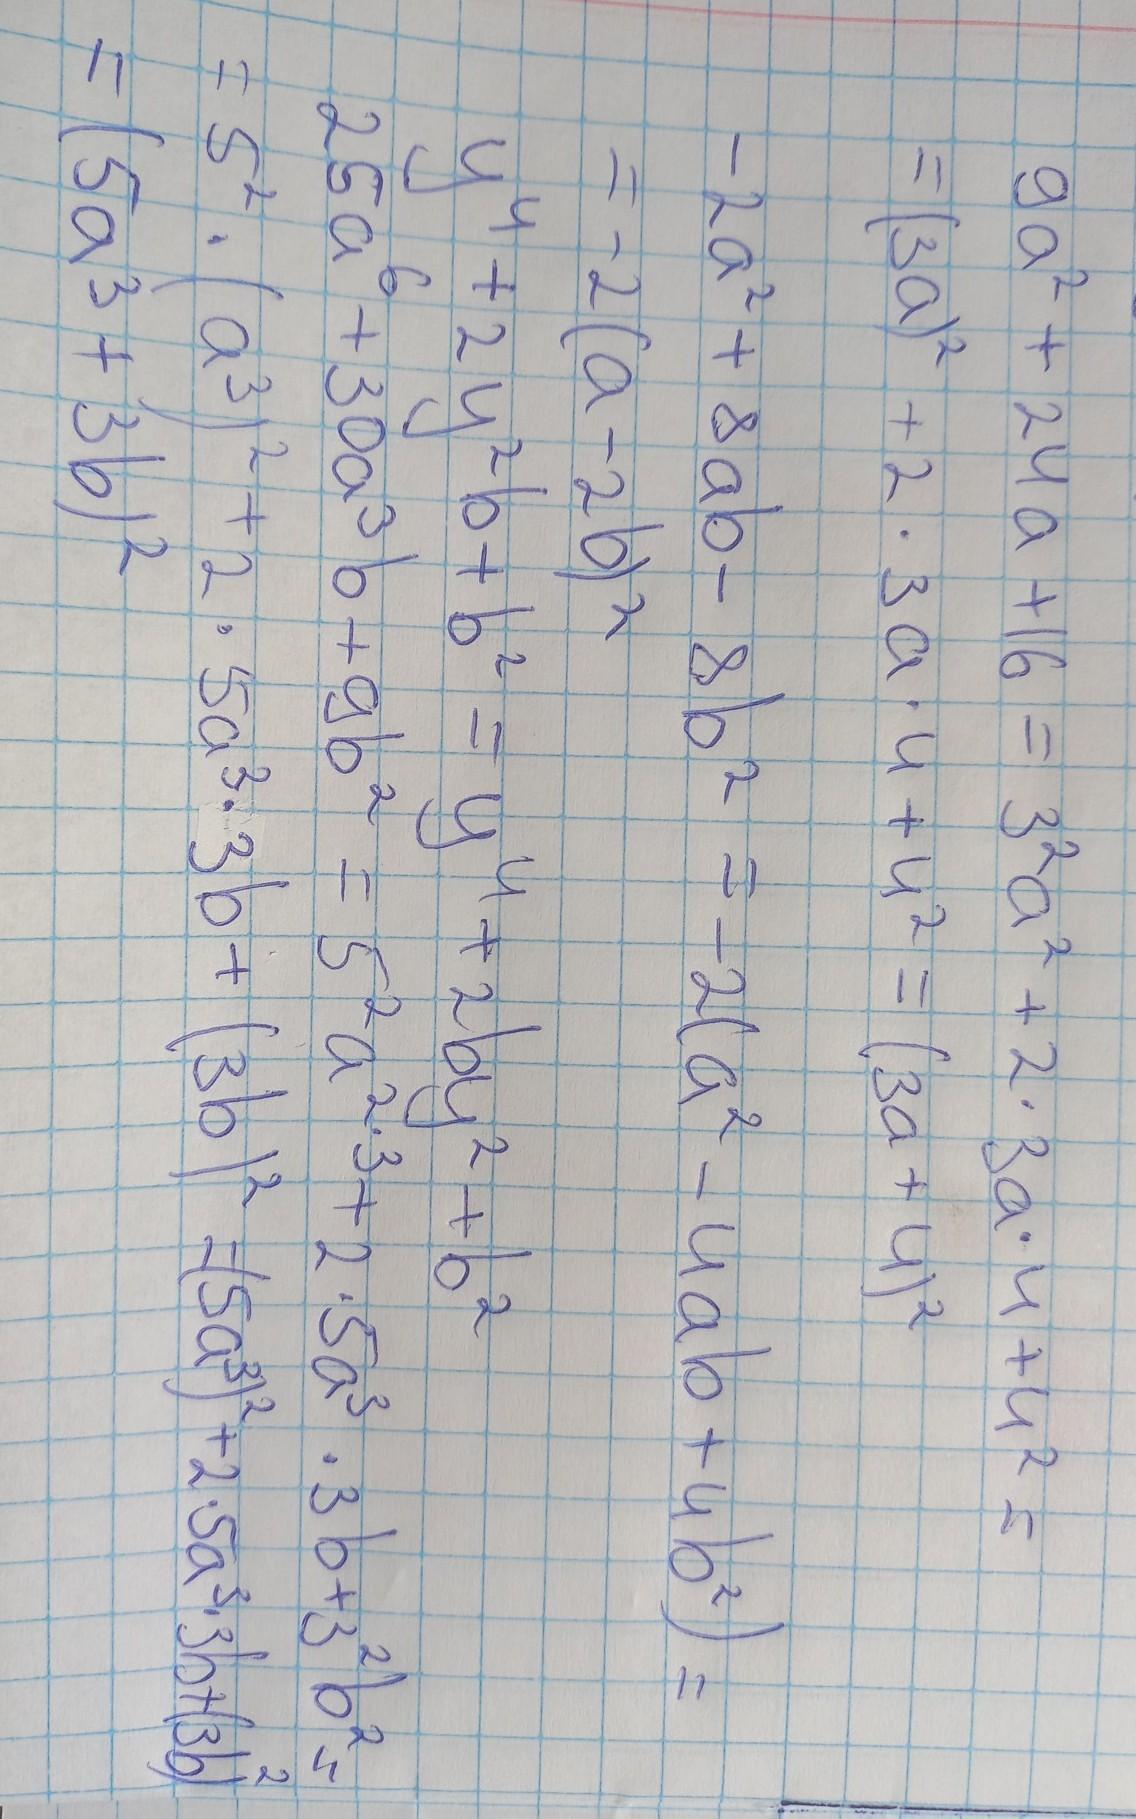 9a² + 24a + 16 = 3²a² + 2·3a·4 + 4² =
= (3a)² + 2·3a·4 + 4² = (3a + 4)²
-2a² + 8ab - 8b² = -2(a² - 4ab + 4b²) =
= -2(a - 2b)²
y⁴ + 2y²b + b² = y⁴ + 2by² + b²
25a⁶ + 30a³b + 9b² = 5²a²·³ + 2·5a³·3b + 3²b² =
= 5²·(a³)² + 2·5a³·3b + (3b)² = (5a³)² + 2·5a³·3b + (3b)²
= (5a³ + 3b)²